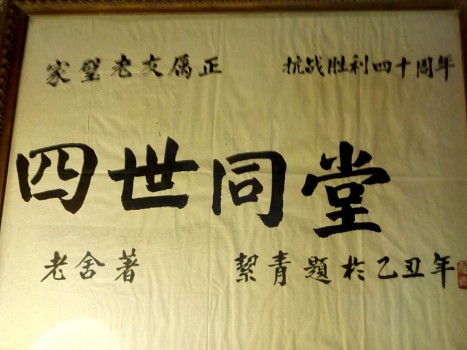 家璧老友属正 抗战胜利四十周年
四世同堂
老舍著 絜青题於乙丑年